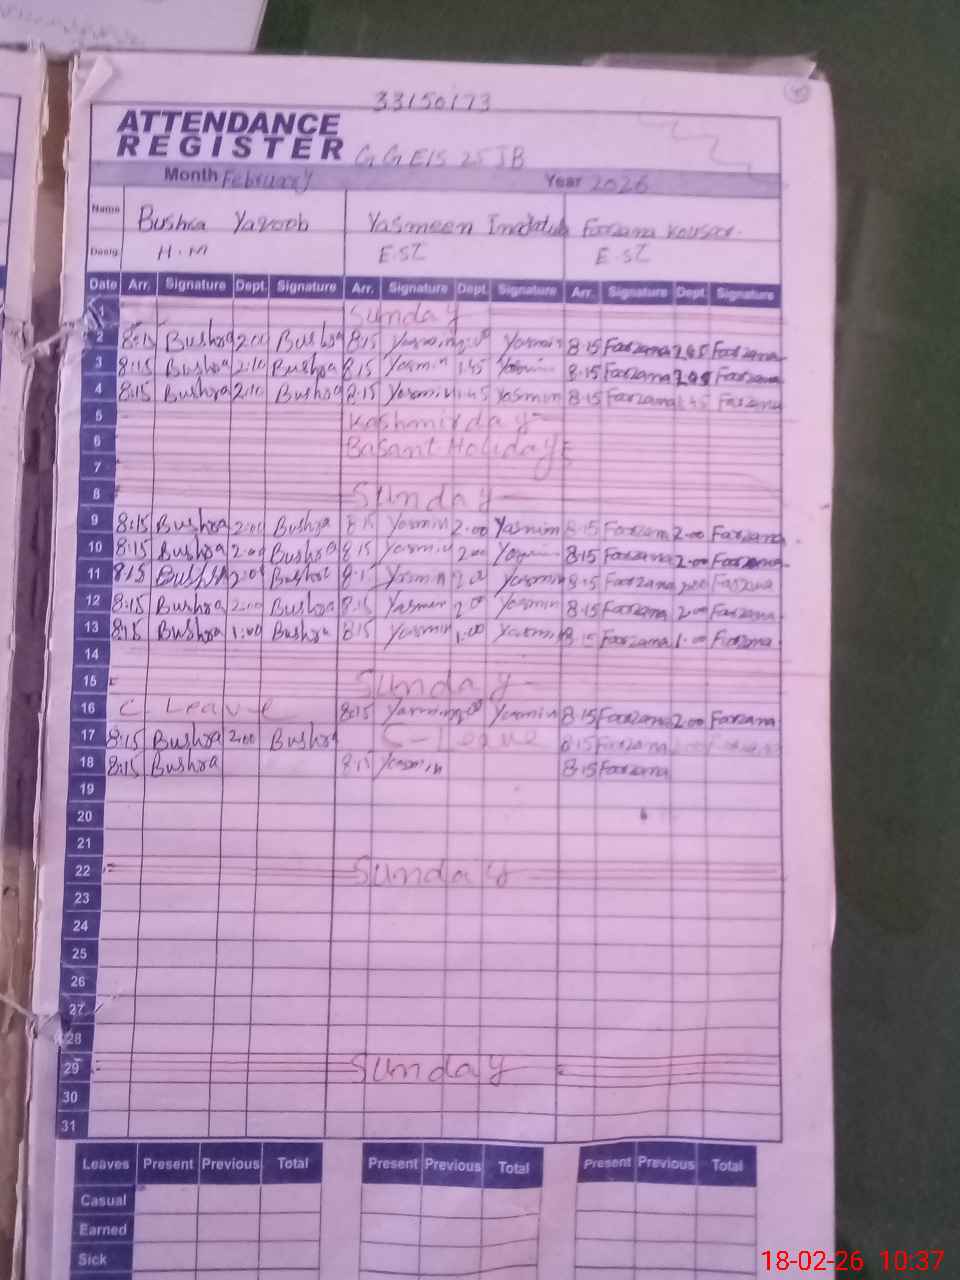 33150173
ATTENDANCE
REGISTER GGEIS 25 JB
Month February Year 2026
Name Bushra Yaqoob Yasmeen Farzana Kousar
Desig. H.M E.ST E.ST
Date Arr. Signature Dept. Signature Arr. Signature Dept. Signature Arr. Signature Dept. Signature
1 Sunday
2 8:15 Bushra 2:00 Bushra 8:15 Yasmin Yasmin 8:15 Farzana 1.45 Farzana
3 8:15 Bushra 2:10 Bushra 8:15 Yasmin 1.45 Yasmin 8:15 Farzana 1.45 Farzana
4 8:15 Bushra 2:10 Bushra 8:15 Yasmin 1.45 Yasmin 8:15 Farzana 1.45 Farzana
5 Kashmir day
6 Basant Holidays
7
8 Sunday
9 8:15 Bushra 2:00 Bushra 8:15 Yasmin 2.00 Yasmin 8:15 Farzana 2.00 Farzana
10 8:15 Bushra 2:00 Bushra 8:15 Yasmin 2.00 Yasmin 8:15 Farzana 2.00 Farzana
11 8:15 Bushra 2:00 Bushra 8:15 Yasmin 2.00 Yasmin 8:15 Farzana 2.00 Farzana
12 8:15 Bushra 2:00 Bushra 8:15 Yasmin 2.00 Yasmin 8:15 Farzana 2.00 Farzana
13 8:15 Bushra 1:00 Bushra 8:15 Yasmin 1:00 Yasmin 8:15 Farzana 1.00 Farzana
14
15 Sunday
16 C. Leave 8:15 Yasmin 2.00 Yasmin 8:15 Farzana 2.00 Farzana
17 8:15 Bushra 2:00 Bushra C-Leave 8:15 Farzana 2.00 Farzana
18 8:15 Bushra 8:15 Yasmin 8:15 Farzana
19
20
21
22 Sunday
23
24
25
26
27
28
29 Sunday
30
31
Leaves Present Previous Total Present Previous Total Present Previous Total
Casual
Earned
Sick
18-02-26 10:37